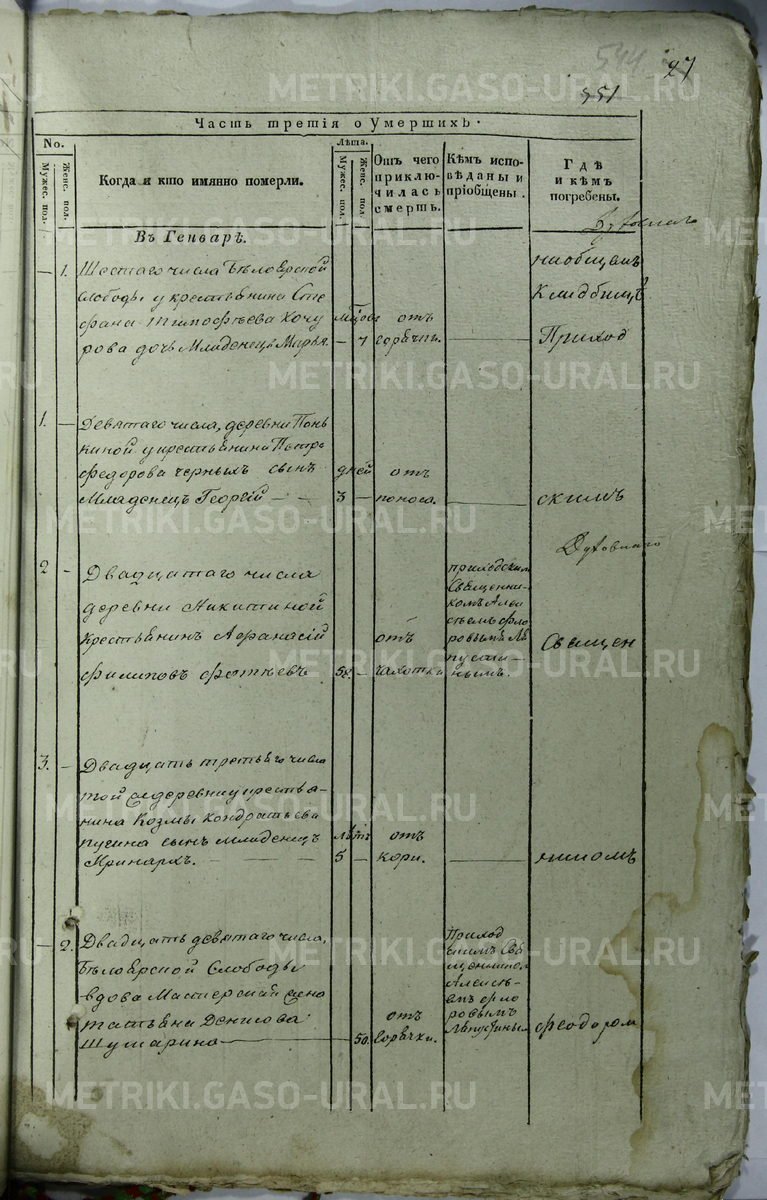 544
27
351
Часть третія о Умершихъ.
No.
Мужес. пол.
Женс. пол.
Когда и кто имянно померли.
Лѣта.
Мужес. пол.
Женс. пол.
Отъ чего приключилась смерть.
Кѣмъ исповѣданы и пріобщены.
Гдѣ и кѣмъ погребены.
Въ Генварѣ.
— 1. Шестаго числа Бѣлоярской
слободы у крестьянина Сте
фана Тимофѣева Кочу
рова дочь младенецъ Марья.
— 7
отъ
горячъки.
на общемъ
кладбищѣ
Приход
1. — Девятаго числа, деревни Понь
киной у крестьянина Петра
Федорова Черныхъ сынъ
младенецъ Георгій — —
дней
3 —
отъ
поноса.
скимъ
Духовнаго
2 — Двадцатаго числа
деревни Никитиной
крестьянинъ Афанасій
Филиповъ Фотѣевъ
58. —
отъ
чахотки
приходским
Священни-
комъ Алек
сѣемъ Фло
ровымъ Ла
пусти-
нымъ.
Священ
3. — Двадцать третьяго числа
той же деревни у крестья-
нина Козмы Кондратьева
сынъ младенецъ
Иринархъ. — — —
лѣтъ
5 —
отъ
кори.
никомъ
— 2. Двадцать девятаго числа,
Бѣлоярской Слободы
вдова Мастерская жена
Татьяна Денисова
Шумарина
— 50.
отъ
горячки.
Приход
скимъ Свя
щенником
Алексѣ-
емъ Фло
ровымъ
Феодором
METRIKI.GASO-URAL.RU